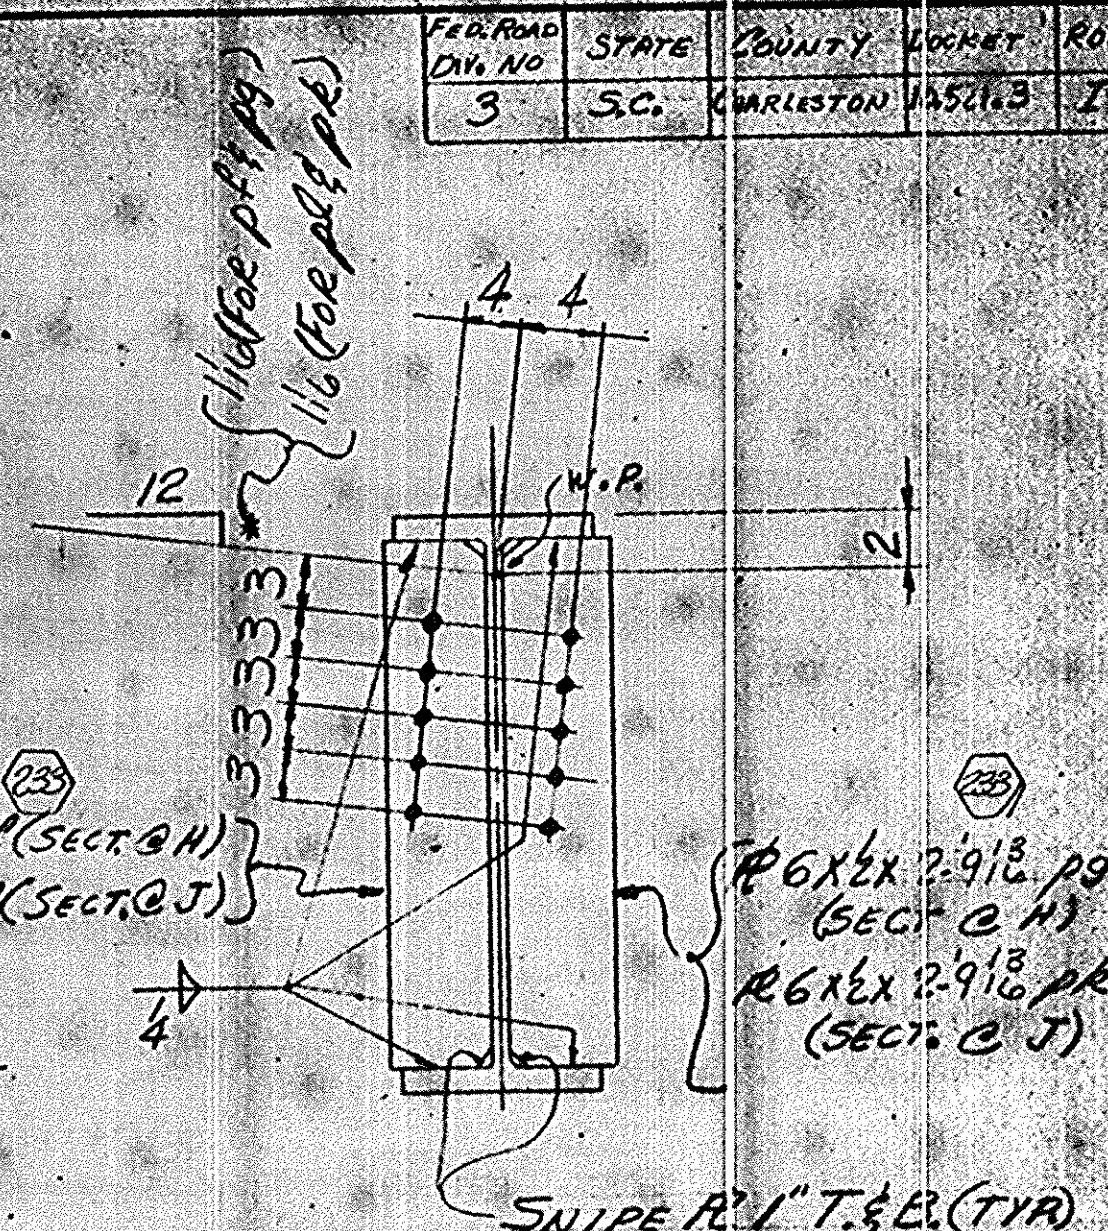 FED. ROAD DIV. NO
STATE
COUNTY
DOCKET
RO
3
S.C.
CHARLESTON
I
1 1/16 (FOR pf & pg)
1 1/16 (FOR pl & pk)
4 4
12
W.P.
*
2
3
3
3
3
3
233
233
"(SECT. @ H)
"(SECT. @ J)
PL 6 X 1/2 X 2'-9 13/16 pg
(SECT @ H)
PL 6 X 1/2 X 2'-9 13/16 pk
(SECT. @ J)
1/4
SNIPE PL 1" T. & B. (TYP.)